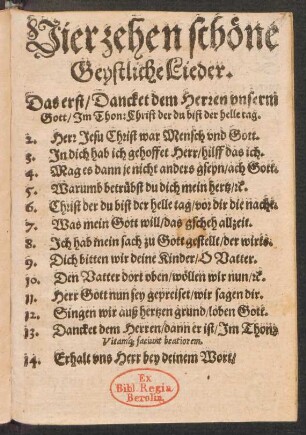 Vierzehen schöne
Geystliche Lieder.
Das erst/ Dancket dem Herren vnserm
Gott/ Im Thon: Christ der du bist der helle tag.
2. Herr Jesu Christ war Mensch vnd Gott.
3. In dich hab ich gehoffet Herr/ hilff das ich.
4. Mag es dann je nicht anders gseyn/ ach Gott.
5. Warumb betrübst du dich mein hertz/ ꝛc.
6. Christ der du bist der helle tag/ vor dir die nacht.
7. Was mein Gott will/ das gscheh allzeit.
8. Ich hab mein sach zu Gott gestelt/ der wirts.
9. Dich bitten wir deine Kinder/ O Vatter.
10. Den Vatter dort oben/ wöllen wir nun/ ꝛc.
11. Herr Gott nun sey gepreiset/ wir sagen dir.
12. Singen wir auß hertzen grund/ loben Gott.
13. Dancket dem Herren/ dann er ist/ Im Thon:
Vitamq; faciunt beatiorem.
14. Erhalt vns Herr bey deinem Wort/
Ex
Bibl. Regia
Berolin.